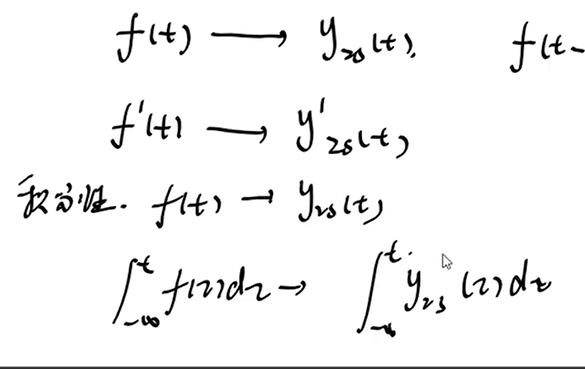 f(t) → y_zs(t). f(t-
f'(t) → y'_zs(t)
积分性. f(t) → y_zs(t)
∫_{-∞}^{t} f(τ)dτ → ∫_{-∞}^{t} y_zs(τ)dτ